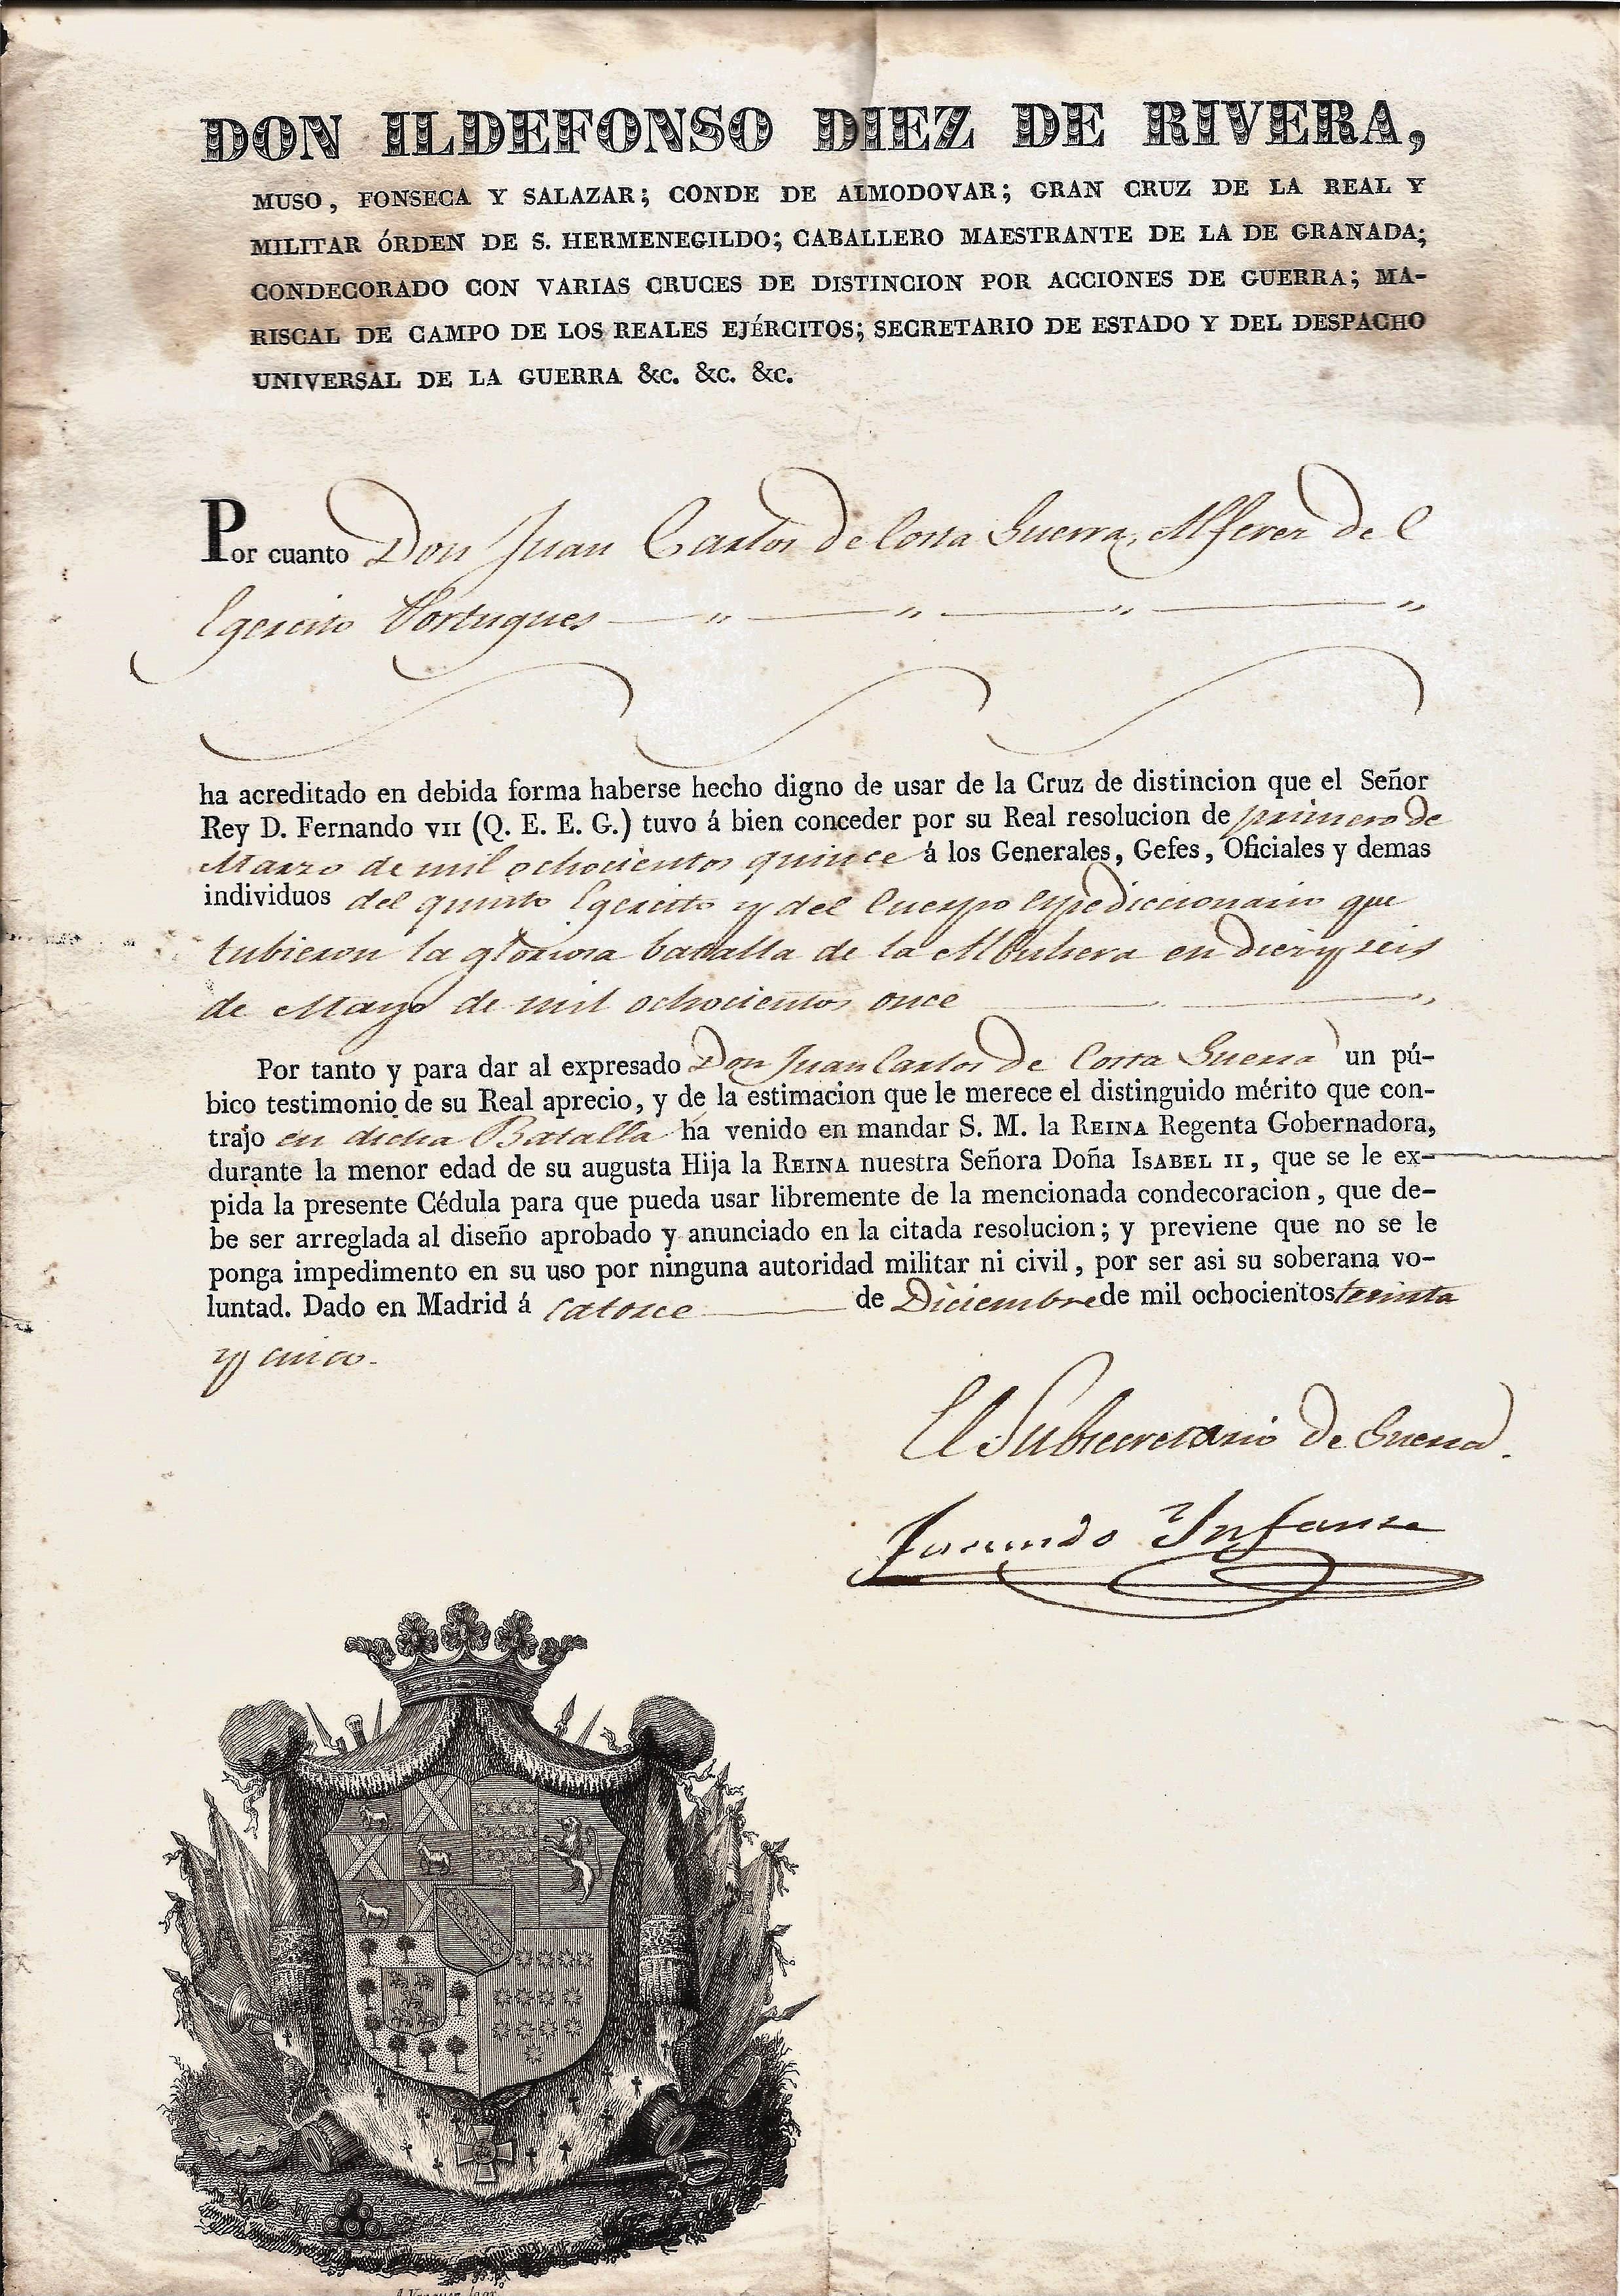 DON ILDEFONSO DIEZ DE RIVERA,
MUSO, FONSECA Y SALAZAR; CONDE DE ALMODOVAR; GRAN CRUZ DE LA REAL Y
MILITAR ÓRDEN DE S. HERMENEGILDO; CABALLERO MAESTRANTE DE LA DE GRANADA;
CONDECORADO CON VARIAS CRUCES DE DISTINCION POR ACCIONES DE GUERRA; MA-
RISCAL DE CAMPO DE LOS REALES EJÉRCITOS; SECRETARIO DE ESTADO Y DEL DESPACHO
UNIVERSAL DE LA GUERRA &c. &c. &c.
Por cuanto Don Juan Carlos de Costa Guerra, Alferez del
Egercito Portugues
ha acreditado en debida forma haberse hecho digno de usar de la Cruz de distincion que el Señor
Rey D. Fernando VII (Q. E. E. G.) tuvo á bien conceder por su Real resolucion de primero de
Marzo de mil ochocientos quince á los Generales, Gefes, Oficiales y demas
individuos del quinto Egercito y del Cuerpo Expediccionario que
tubieron la gloriosa batalla de la Albuhera en diez y seis
de Mayo de mil ochocientos once
Por tanto y para dar al expresado Don Juan Carlos de Costa Guerra un pú-
bico testimonio de su Real aprecio, y de la estimacion que le merece el distinguido mérito que con-
trajo en dicha Batalla ha venido en mandar S. M. la REINA Regenta Gobernadora,
durante la menor edad de su augusta Hija la REINA nuestra Señora Doña ISABEL II, que se le ex-
pida la presente Cédula para que pueda usar libremente de la mencionada condecoracion, que de-
be ser arreglada al diseño aprobado y anunciado en la citada resolucion; y previene que no se le
ponga impedimento en su uso por ninguna autoridad militar ni civil, por ser asi su soberana vo-
luntad. Dado en Madrid á catorce de Diciembre de mil ochocientos treinta
y cinco.
El Subsecretario de Guerra.
Facundo Infante